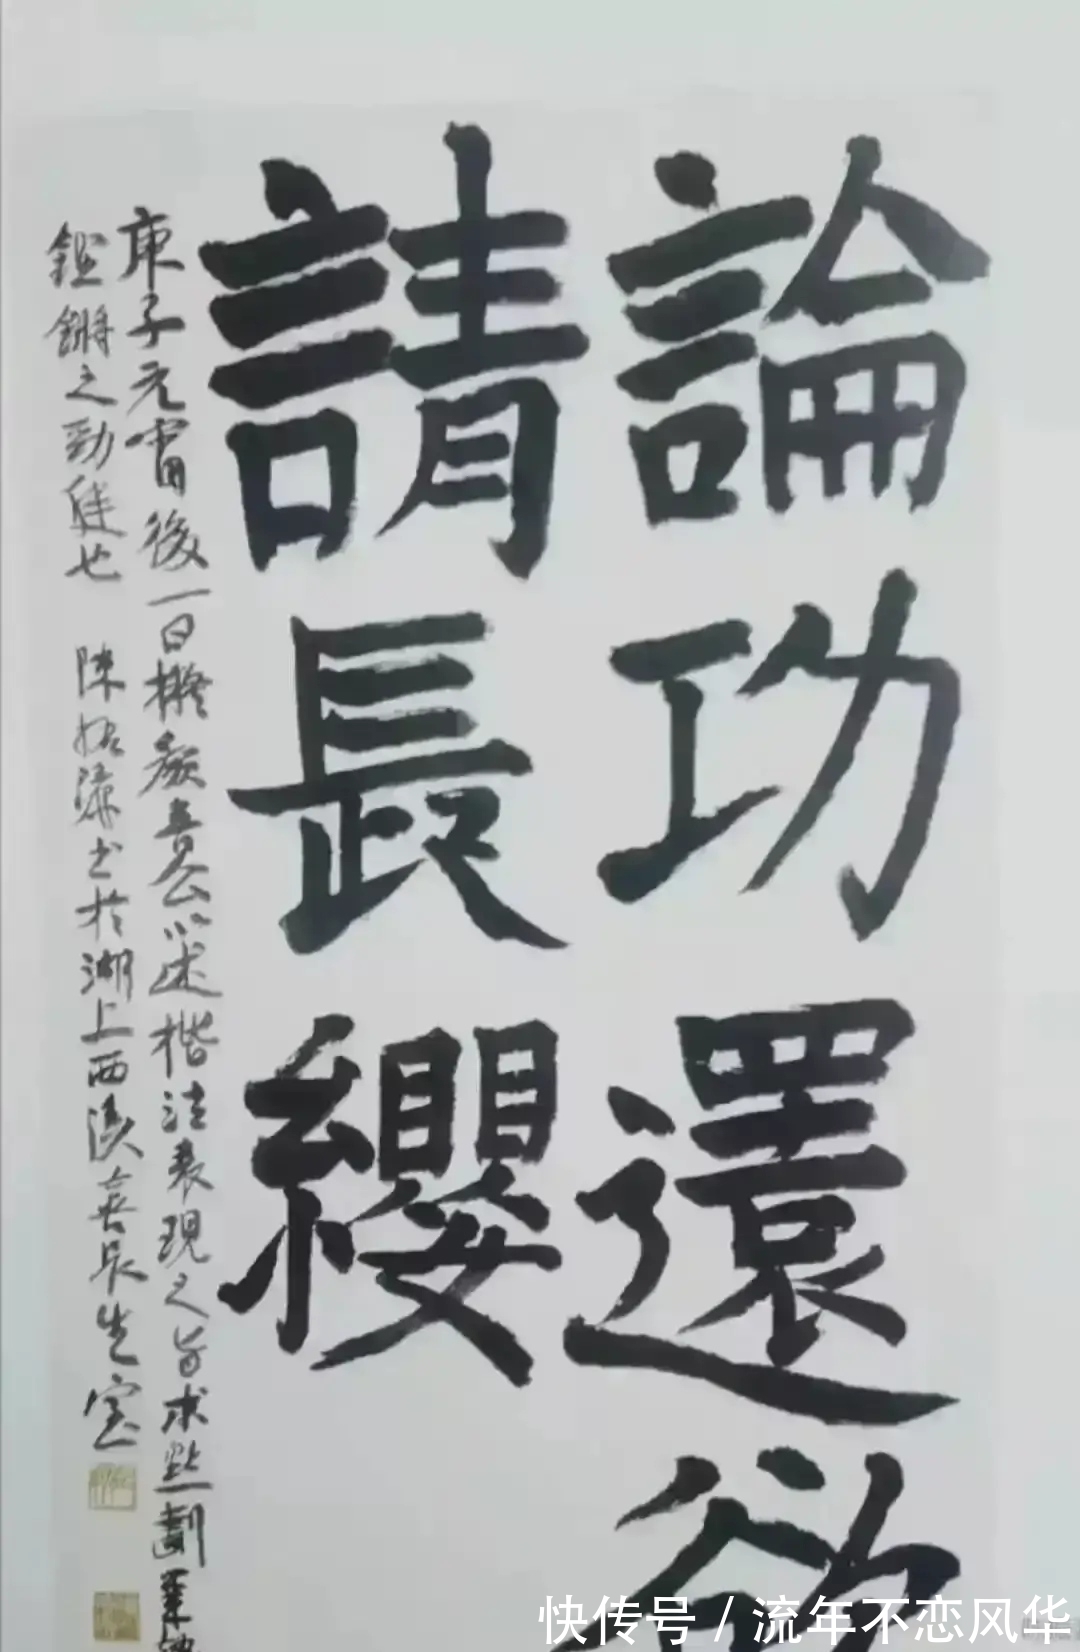 論功還欲
請長纓
庚子元宵後一日擬魯公以述楷法表現之旨求點劃
鏗鏘之勁健也 陳振濂書於湖上西溪喜長生室
快传号 / 流年不恋风华